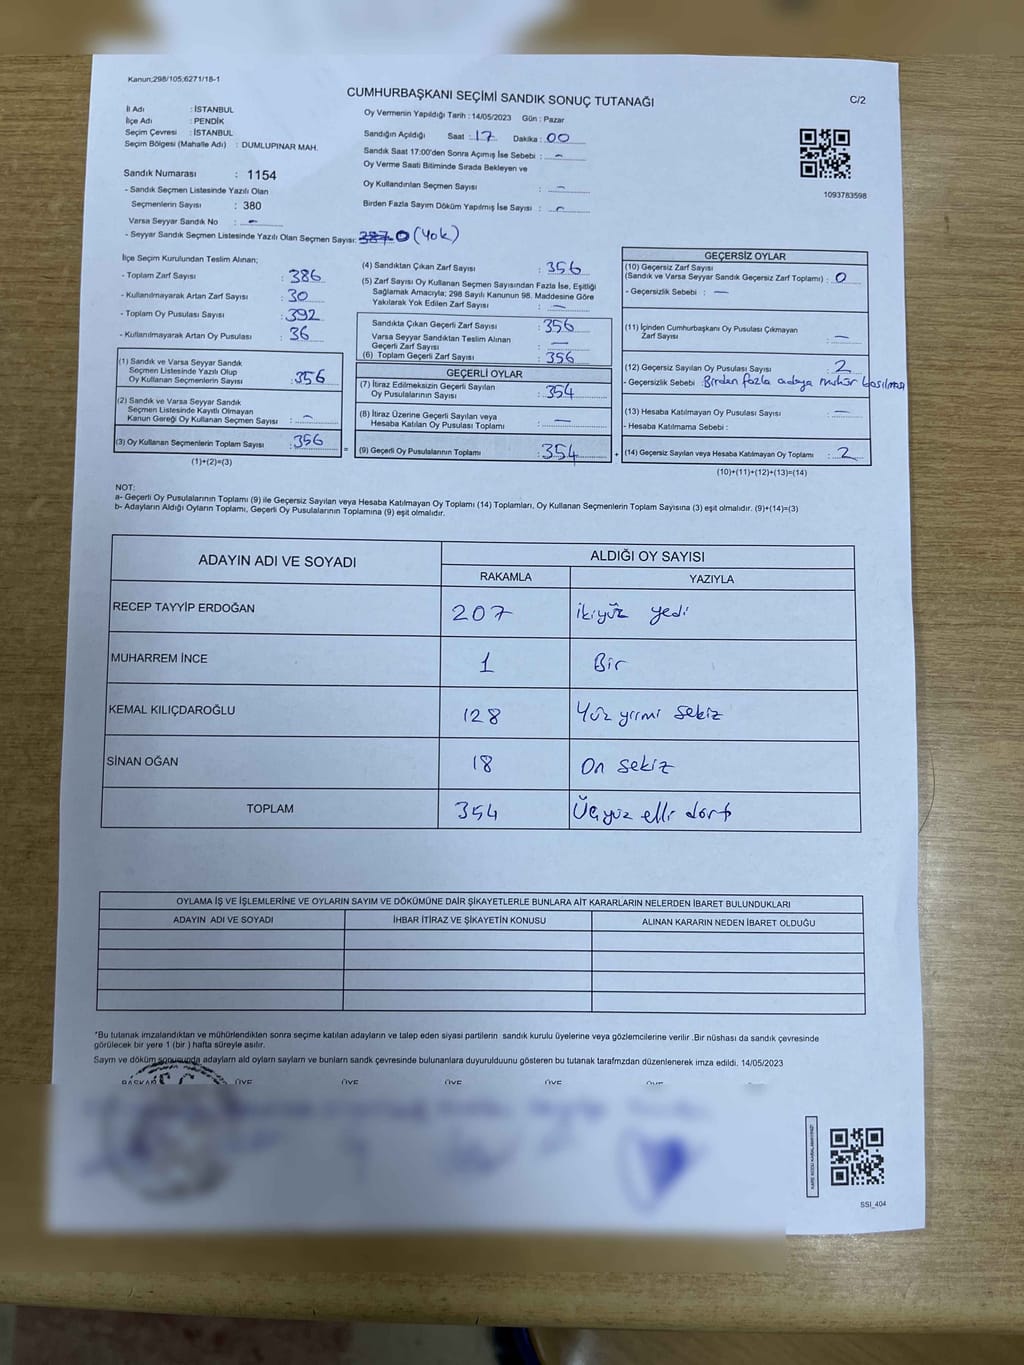 Kanun;298/105;6271/18-1
CUMHURBAŞKANI SEÇİMİ SANDIK SONUÇ TUTANAĞI
C/2
İl Adı : İSTANBUL
İlçe Adı : PENDİK
Seçim Çevresi : İSTANBUL
Seçim Bölgesi (Mahalle Adı) : DUMLUPINAR MAH.
Oy Vermenin Yapıldığı Tarih : 14/05/2023 Gün : Pazar
Sandığın Açıldığı Saat : 17 Dakika : 00
Sandık Saat 17:00'den Sonra Açımış İse Sebebi : -
Oy Verme Saati Bitiminde Sırada Bekleyen ve
Oy Kullandırılan Seçmen Sayısı : -
Birden Fazla Sayım Döküm Yapılmış İse Sayısı : -
1093783598
Sandık Numarası : 1154
- Sandık Seçmen Listesinde Yazılı Olan
Seçmenlerin Sayısı : 380
Varsa Seyyar Sandık No : -
- Seyyar Sandık Seçmen Listesinde Yazılı Olan Seçmen Sayısı: 0 (Yok)
İlçe Seçim Kurulundan Teslim Alınan;
- Toplam Zarf Sayısı : 386
- Kullanılmayarak Artan Zarf Sayısı : 30
- Toplam Oy Pusulası Sayısı : 392
- Kullanılmayarak Artan Oy Pusulası : 36
(1) Sandık ve Varsa Seyyar Sandık
Seçmen Listesinde Yazılı Olup
Oy Kullanan Seçmenlerin Sayısı : 356
(2) Sandık ve Varsa Seyyar Sandık
Seçmen Listesinde Kayıtlı Olmayan
Kanun Gereği Oy Kullanan Seçmen Sayısı : -
(3) Oy Kullanan Seçmenlerin Toplam Sayısı : 356 =
(1)+(2)=(3)
(4) Sandıktan Çıkan Zarf Sayısı : 356
(5) Zarf Sayısı Oy Kullanan Seçmen Sayısından Fazla İse, Eşitliği
Sağlamak Amacıyla; 298 Sayılı Kanunun 98. Maddesine Göre
Yakılarak Yok Edilen Zarf Sayısı : -
Sandıkta Çıkan Geçerli Zarf Sayısı : 356
Varsa Seyyar Sandıktan Teslim Alınan
Geçerli Zarf Sayısı : -
(6) Toplam Geçerli Zarf Sayısı : 356
GEÇERLİ OYLAR
(7) İtiraz Edilmeksizin Geçerli Sayılan
Oy Pusulalarının Sayısı : 354
(8) İtiraz Üzerine Geçerli Sayılan veya
Hesaba Katılan Oy Pusulası Toplamı : -
(9) Geçerli Oy Pusulalarının Toplamı : 354 +
GEÇERSİZ OYLAR
(10) Geçersiz Zarf Sayısı
(Sandık ve Varsa Seyyar Sandık Geçersiz Zarf Toplamı) : 0
- Geçersizlik Sebebi : -
(11) İçinden Cumhurbaşkanı Oy Pusulası Çıkmayan
Zarf Sayısı : -
(12) Geçersiz Sayılan Oy Pusulası Sayısı : 2
- Geçersizlik Sebebi : Birden fazla adaya mühür basılması
(13) Hesaba Katılmayan Oy Pusulası Sayısı : -
- Hesaba Katılmama Sebebi :
(14) Geçersiz Sayılan veya Hesaba Katılmayan Oy Toplamı : 2
(10)+(11)+(12)+(13)=(14)
NOT:
a- Geçerli Oy Pusulalarının Toplamı (9) ile Geçersiz Sayılan veya Hesaba Katılmayan Oy Toplamı (14) Toplamları, Oy Kullanan Seçmenlerin Toplam Sayısına (3) eşit olmalıdır. (9)+(14)=(3)
b- Adayların Aldığı Oyların Toplamı, Geçerli Oy Pusulalarının Toplamına (9) eşit olmalıdır.
ADAYIN ADI VE SOYADI ALDIĞI OY SAYISI
RAKAMLA YAZIYLA
RECEP TAYYİP ERDOĞAN 207 ikiyüz yedi
MUHARREM İNCE 1 Bir
KEMAL KILIÇDAROĞLU 128 Yüz yirmi sekiz
SİNAN OĞAN 18 On sekiz
TOPLAM 354 Üçyüz elli dört
OYLAMA İŞ VE İŞLEMLERİNE VE OYLARIN SAYIM VE DÖKÜMÜNE DAİR ŞİKAYETLERLE BUNLARA AİT KARARLARIN NELERDEN İBARET BULUNDUKLARI
ADAYIN ADI VE SOYADI İHBAR İTİRAZ VE ŞİKAYETİN KONUSU ALINAN KARARIN NEDEN İBARET OLDUĞU
*Bu tutanak imzalandıktan ve mühürlendikten sonra seçime katılan adayların ve talep eden siyasi partilerin sandık kurulu üyelerine veya gözlemcilerine verilir .Bir nüshası da sandık çevresinde
görülecek bir yere 1 (bir ) hafta süreyle asılır.
Sayım ve döküm sonusunda adayların ald oyların sayların ve bunların sandk çevresinde bulunanlara duyurulduunu gösteren bu tutanak tarafmzdan düzenlenerek imza edildi. 14/05/2023
BAŞKAN ÜYE ÜYE ÜYE ÜYE ÜYE
SSI_404